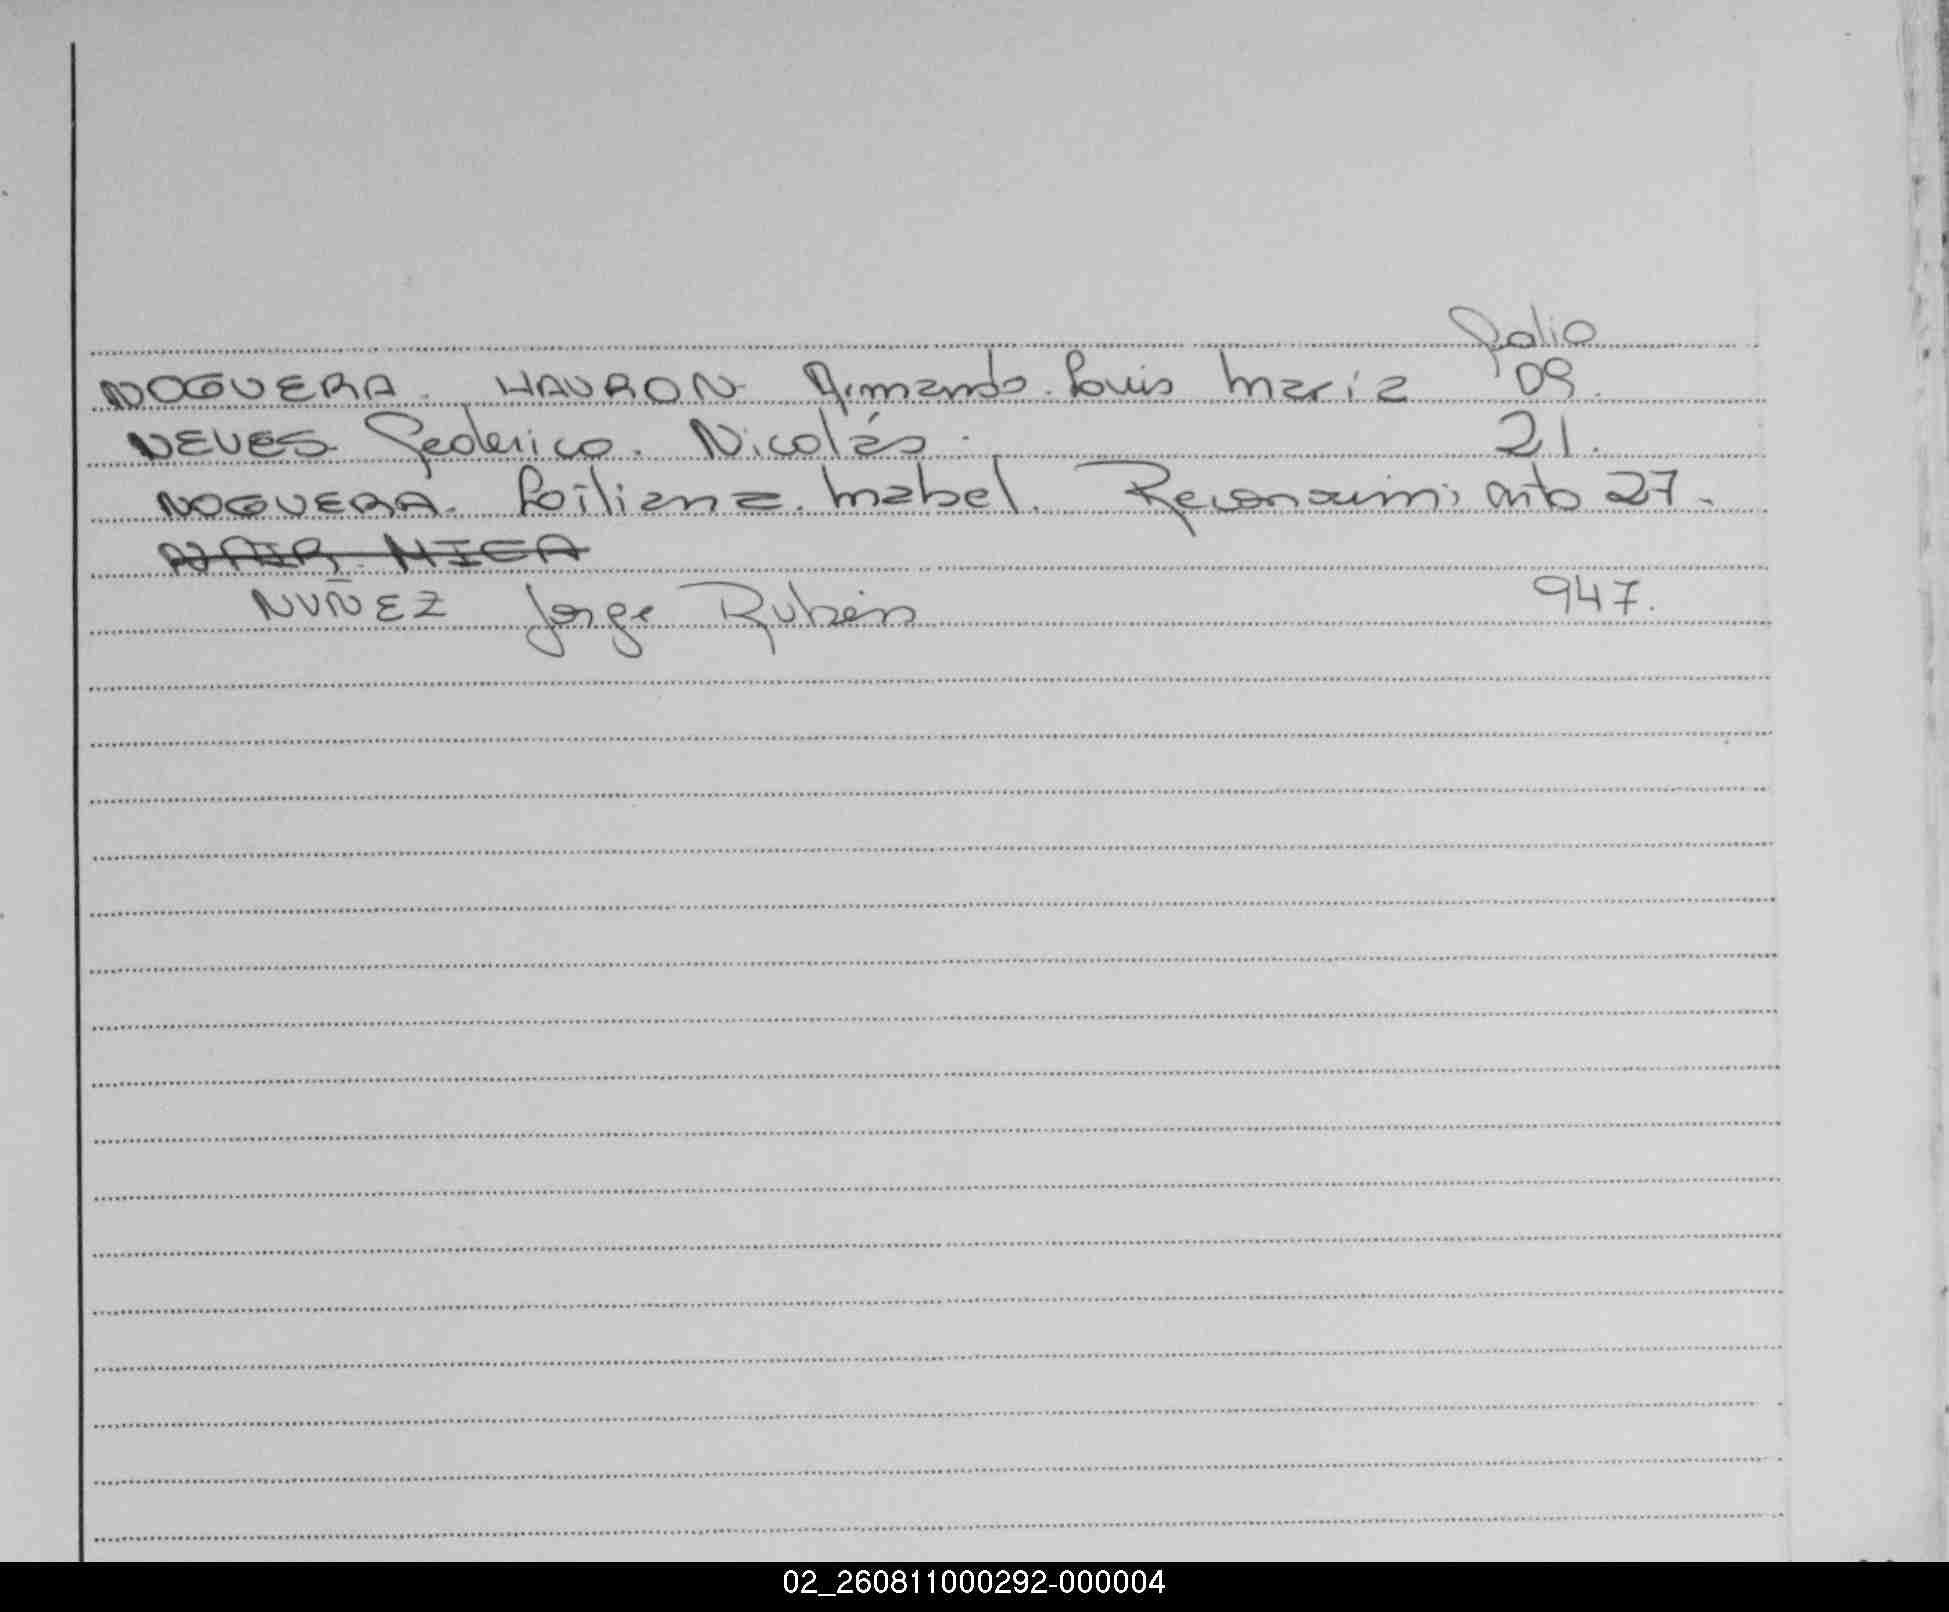 Folio
NOGUERA. HAURON Armando. Luis María 09.
NEVES Federico. Nicolás.
21.
NOGUERA. Liliana. Mabel. Reconocimiento 27.
NAIR MIEA
NUÑEZ Jorge Rubén 947.
02_260811000292-000004